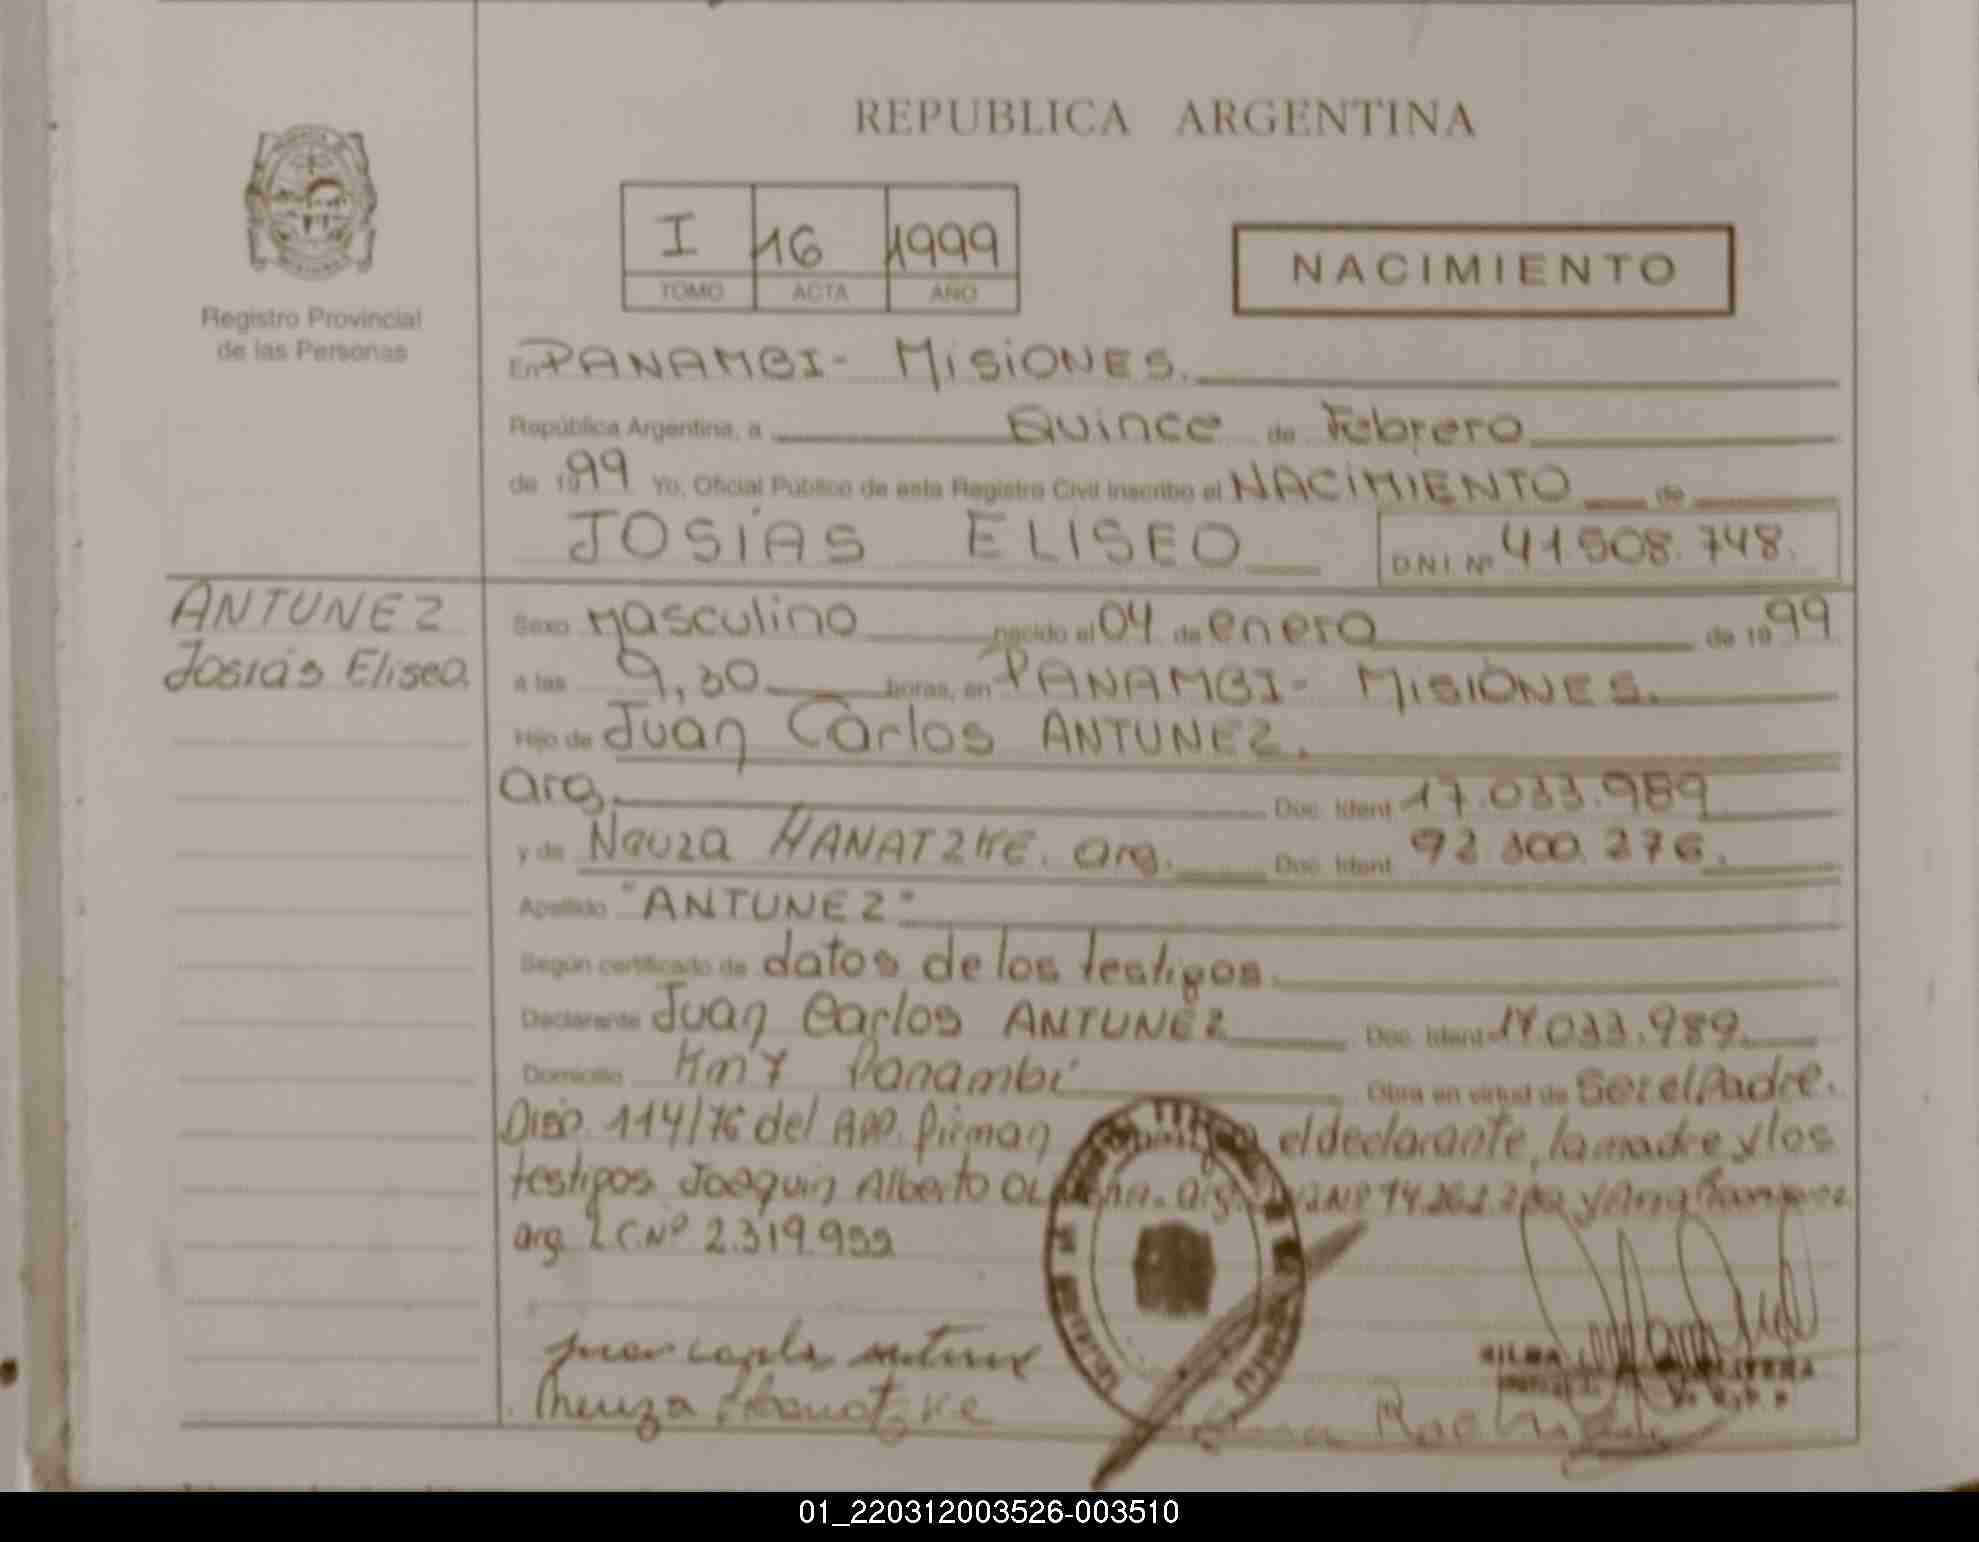 REPUBLICA ARGENTINA
I 16 1999
TOMO ACTA AÑO
NACIMIENTO
Registro Provincial
de las Personas
En PANAMBI - MISIONES.
República Argentina, a Quince de Febrero
de 1999 Yo, Oficial Público de este Registro Civil inscribo el NACIMIENTO de
JOSÍAS ELISEO D.N.I. Nº 41508.748.
ANTUNEZ
Josías Eliseo.
Sexo Masculino nacido el 04 de enero de 1999
a las 9,30 horas, en PANAMBI - MISIONES.
Hijo de Juan Carlos ANTUNEZ.
arg. Doc. Ident 17.033.989
y de Neuza HANATZKE. arg. Doc. Ident 92.300.276.
Apellido "ANTUNEZ"
Según certificado de datos de los testigos
Declarante Juan Carlos ANTUNEZ Doc. Ident 17.033.989.
Domicilio Km 7 Panambí Obra en virtud de Ser el Padre.
Disp. 114/76 del APP. Firman el declarante, la madre y los
testigos Joaquin Alberto arg. y
arg. L.C.Nº 2.319.959
Juan Carlos Antunez
Neuza Hanatzke
01_220312003526-003510